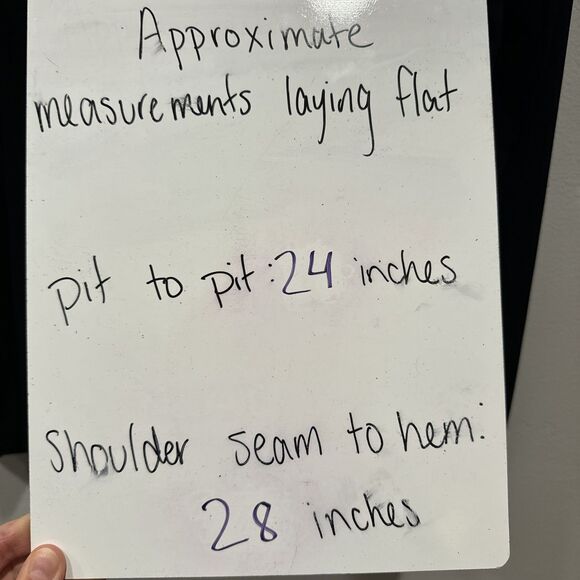 Approximate
measurements laying flat
pit to pit: 24 inches
Shoulder seam to hem:
28 inches